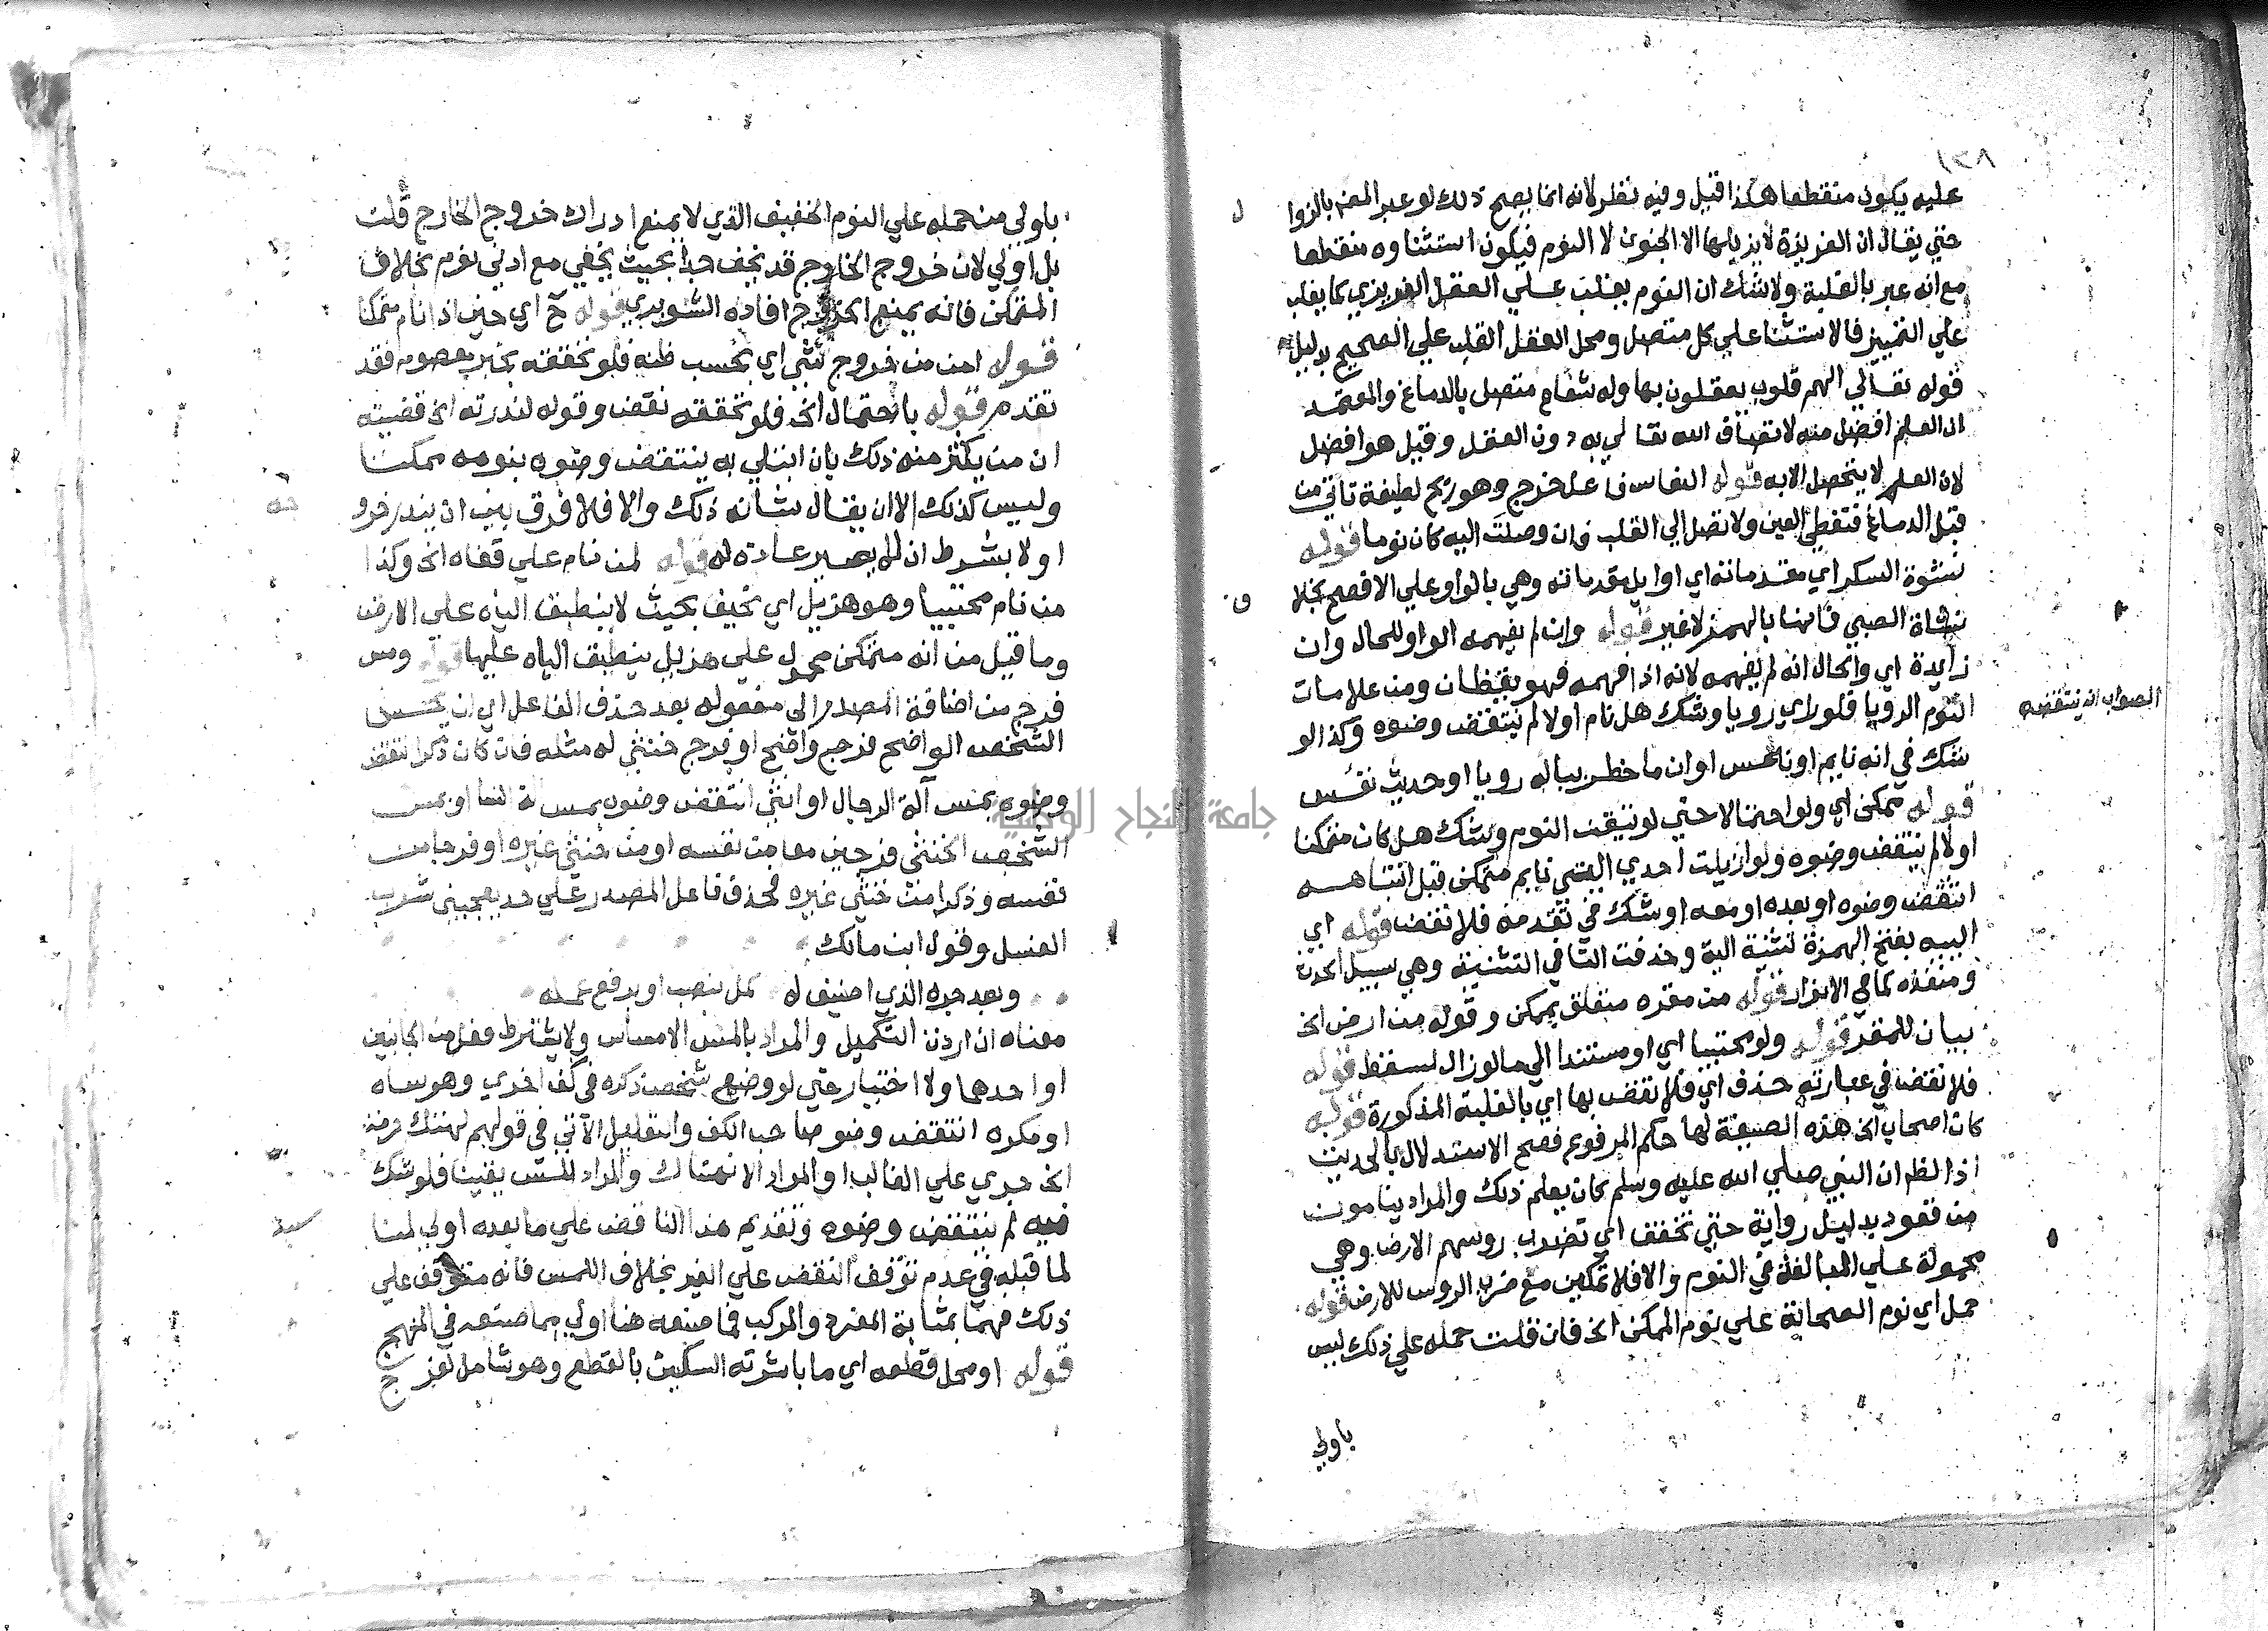 ١٢٨
عليه يكون منقطعا هكذا قيل وفيه نظر لانه انما يصح ذلك لو عبر المصنف بالزوا
ل
حتي يقال ان الغريزة لا يزيلها الا الجنون لا النوم فيكون استثناوه منقطعا
مع انه عبر بالغلبة ولا شك ان النوم يغلب علي العقل الغريزي كما يغلب
علي التمييز فالاستثنا علي كل متصل ومحل العقل القلب علي الصحيح بدليل
قوله تعالي لهم قلوب يعقلون بها وله شعاع متصل بالدماغ والمعتمد
ان العلم افضل منه لاتصاف الله تعالي به دون العقل وقيل هو افضل
لان العلم لا يتحصل الا به قوله النعاس خرج وهو ريح لطيفة تاتي من
قبل الدماغ فتغطي العين ولا تصل الي القلب فان وصلت اليه كان نوما قوله
نشوة السكر اي مقدماته اي اوايل مقدماته وهي بالواو علي الافصح بخلا
ف
نشاة الصبي فانها بالهمز لا غير قوله وان لم يفهمه الواو للحال وان
زايدة اي والحال انه لم يفهمه لانه اذا فهمه فهو يقظان ومن علامات
النوم الرويا فلو راي رويا وشك هل نام اولا لم ينتقض وضوه وكذا لو
الصواب انه ينتقض
شك في انه نايم او ناعس او ان ما خطر بباله رويا او حديث نفس
قوله ممكن اي ولو احتمالا حتي لو تيقن النوم وشك هل كان متمكنا
اولا لم ينتقض وضوه ولو ازيلت احدي اليتي نايم متمكن قبل انتباهه
انتقض وضوه او بعده او معه او شك في تقدمه فلا نقض قوله اي
الييه بفتح الهمزة تثنية الية وحذفت التا في التثنية وهي سبيل الحدث
ومنفذه كما في الابزار قوله من مقره متعلق بممكن وقوله من ارض الخ
بيان للمقر قوله ولو محتبيا اي او مستندا الي ما لو زال لسقط قوله
فلا نقض في عبارته حذف اي فلا نقض بها اي بالغلبة المذكورة قوله
كان اصحاب الخ هذه الصيغة لها حكم المرفوع فصح الاستدلال بالحديث
اذ الظ ان النبي صلي الله عليه وسلم كان يعلم ذلك والمراد ينامون
من قعود بدليل رواية حتي تخفق اي تضرب روسهم الارض وهي
محمولة علي المبالغة في النوم والا فلا تمكين مع ضرب الروس للارض قوله
حمل اي نوم الصحابة علي نوم الممكن الخ فان قلت حمله علي ذلك ليس
باولي
باولي من حمله علي النوم الخفيف الذي لا يمنع ادراك خروج الخارج قلت
بل اولي لان خروج الخارج قد يخف جدا بحيث يخفي مع ادني نوم بخلاف
المتمكن فانه يمنع الخروج افاده الشوبري قوله ح اي حين اذا نام متمكنا
قوله امن من خروج شي اي بحسب ظنه فلو تحققه بخبر معصوم فقد
تقدم قوله باحتمال الخ فلو تحققه نقض وقوله لندرته الخ قضيته
ان من يكثر منه ذلك بان ابتلي به ينتقض وضوه بنومه ممكنا
وليس كذلك الا ان يقال شانه ذلك والا فلا فرق بين ان يندر خرو
جه
اولا بشرط ان لا يصير عادة له قوله لمن نام علي قفاه الخ وكذا
من نام محتبيا وهو هزيل اي نحيف بحيث لا ينطبق الياه علي الارض
وما قيل من انه متمكن محمول علي هزيل ينطبق الياه عليها قوله ومس
فرج من اضافة المصدر الي مفعوله بعد حذف الفاعل اي ان يمس
الشخص الواضح فرج واضح او فرج خنثي له مثله فان كان ذكرا نقض
وضوه بمس آلة الرجال او انثي انتقض وضوه بمس آلة النسا او يمس
الشخص الخنثي فرجين معا من نفسه او من خنثي غيره او فرجا من
نفسه وذكرا من خنثي غيره فحذف فاعل المصدر علي حد يعجبني شرب
العسل وقول ابن مالك
وبعد جره الذي اضيف له كمل بنصب او برفع عمله
معناه ان اردت التكميل والمراد بالمس الامساس ولا يشترط فعل من الجانبين
او احدهما ولا اختيار حتي لو وضع شخص ذكره في كف اخري وهو ساه
او مكره انتقض وضو صاحب الكف والتعليل الآتي في قولهم لهتك حرمته
الخ جري علي الغالب او المراد الانهتاك والمراد المس يقينا فلو شك
فيه لم ينتقض وضوه وتقديم هذا الناقض علي ما بعده اولي
لما قبله في عدم توقف النقض علي الغير بخلاف اللمس فانه متوقف علي
ذلك فهما بمثابة المفرد والمركب فما صنعه هنا اولي مما صنعه في المنهج
قوله او محل قطعه اي ما باشرته السكين بالقطع وهو شامل لفرج
جامعة النجاح الوطنية